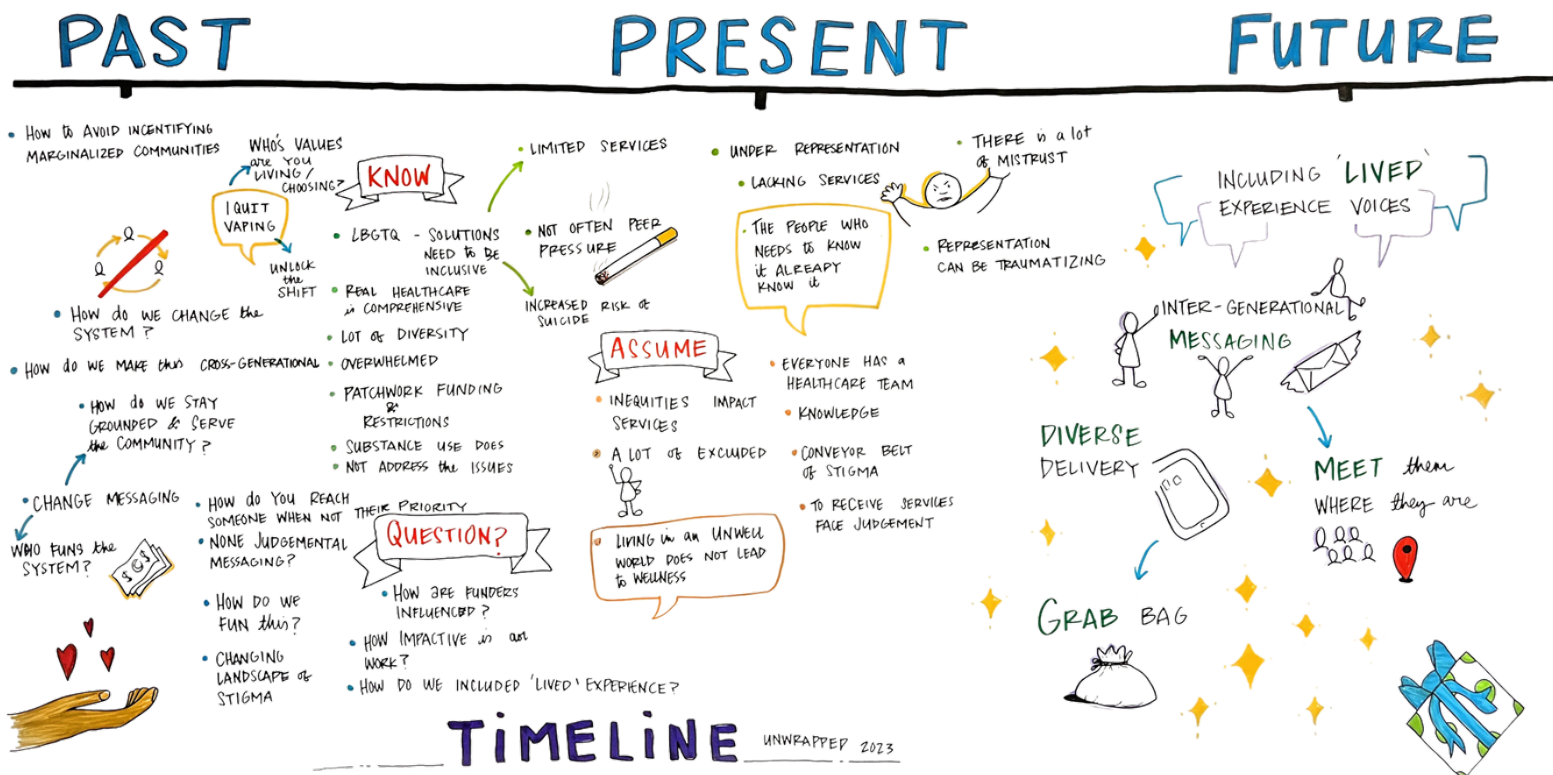 PAST
PRESENT
FUTURE
• HOW to AVOID INCENTIFYING
MARGINALIZED COMMUNITIES
WHO'S VALUES
are YOU
LIVING /
CHOOSING?
I QUIT
VAPING
UNLOCK
the
SHIFT
• HOW do WE CHANGE the
SYSTEM ?
• HOW do WE MAKE this CROSS-GENERATIONAL
• HOW do WE STAY
GROUNDED & SERVE
the COMMUNITY ?
• CHANGE MESSAGING
WHO FUNS the
SYSTEM ?
KNOW
• LBGTQ - SOLUTIONS
NEED to BE
INCLUSIVE
• REAL HEALTHCARE
is COMPREHENSIVE
• LOT of DIVERSITY
• OVERWHELMED
• PATCHWORK FUNDING
&
RESTRICTIONS
• SUBSTANCE USE DOES
• NOT ADDRESS the ISSUES
• LIMITED SERVICES
• NOT OFTEN PEER
PRESSURE
INCREASED RISK of
SUICIDE
• HOW do YOU REACH
SOMEONE WHEN NOT THEIR PRIORITY
• NONE JUDGEMENTAL
MESSAGING?
• HOW DO WE
FUN this?
• CHANGING
LANDSCAPE of
STIGMA
QUESTION?
• HOW ARE FUNDERS
INFLUENCED ?
• HOW IMPACTIVE is our
WORK?
• HOW DO WE INCLUDED 'LIVED' EXPERIENCE?
• UNDER REPRESENTATION
• LACKING SERVICES
• THE PEOPLE WHO
NEEDS to KNOW
it ALREADY
KNOW it
• THERE is a LOT
of MISTRUST
• REPRESENTATION
CAN BE TRAUMATIZING
ASSUME
• INEQUITIES IMPACT
SERVICES
• A LOT of EXCLUDED
• LIVING in an UNWELL
WORLD DOES NOT LEAD
to WELLNESS
• EVERYONE HAS a
HEALTHCARE TEAM
• KNOWLEDGE
• CONVEYOR BELT
of STIGMA
• TO RECEIVE SERVICES
FACE JUDGEMENT
INCLUDING 'LIVED'
EXPERIENCE VOICES
INTER-GENERATIONAL
MESSAGING
DIVERSE
DELIVERY
MEET them
WHERE they are
GRAB BAG
TiMELiNE
UNWRAPPED 2023